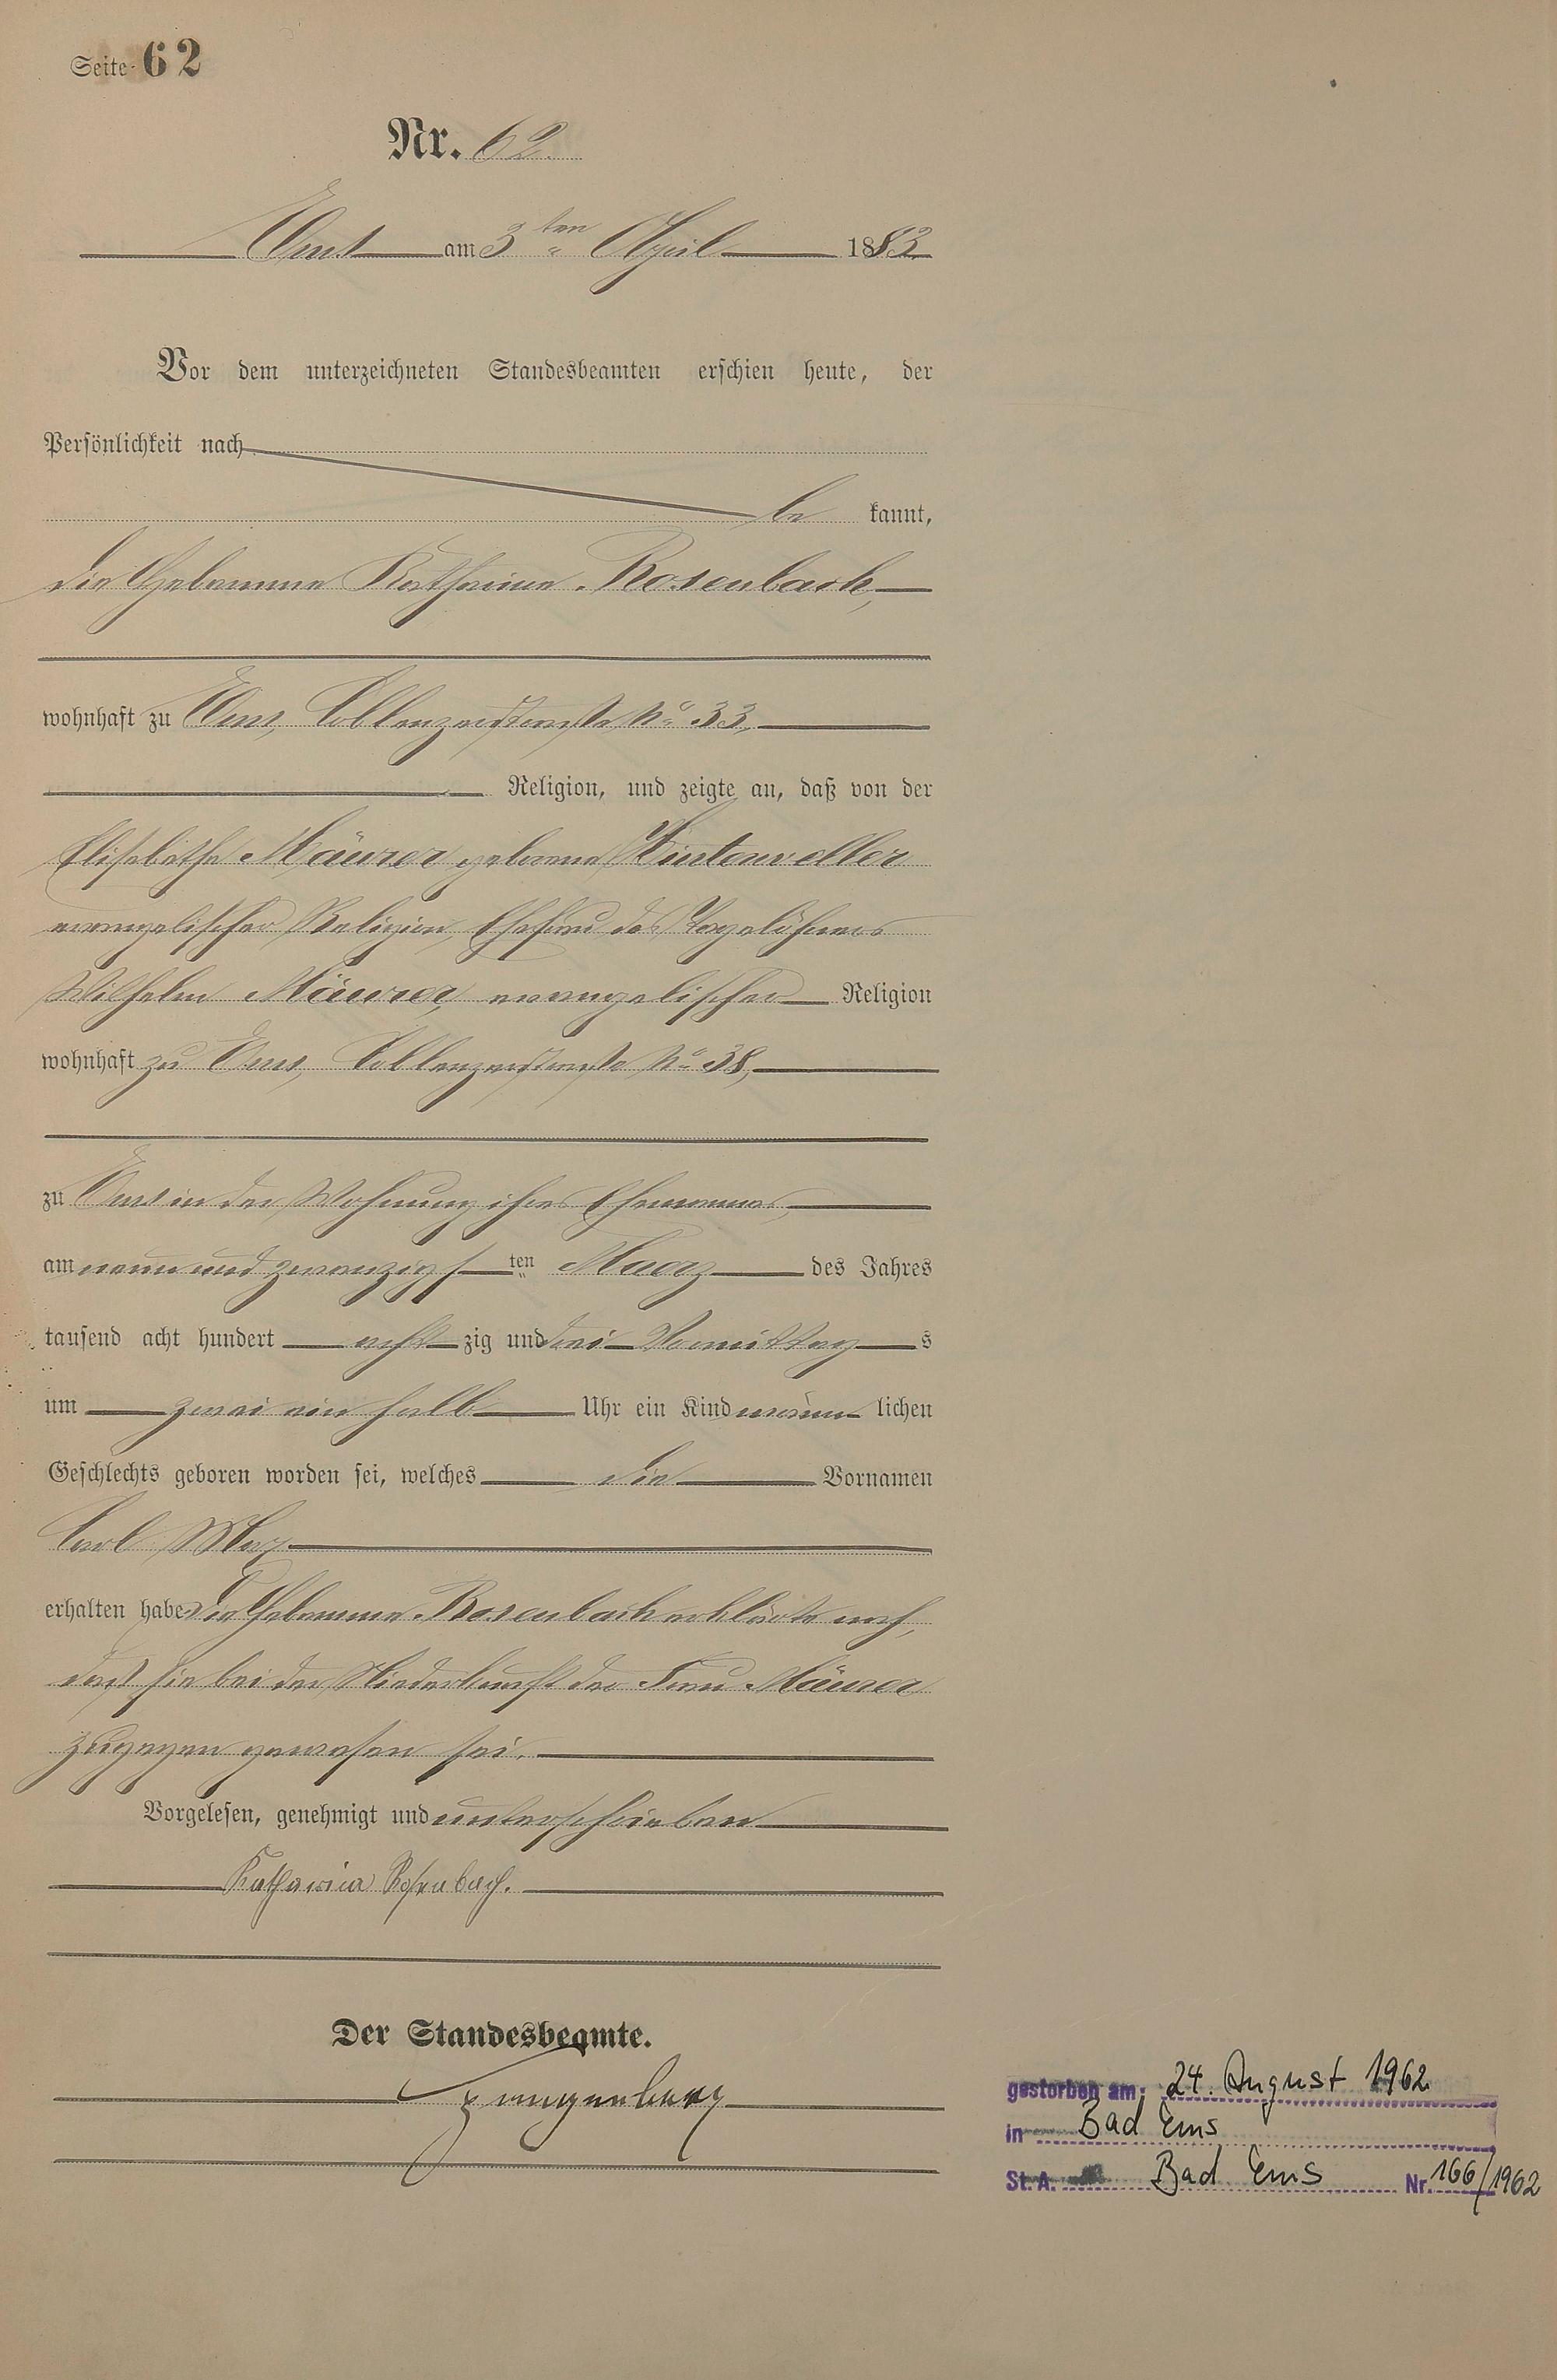 Seite 62
Nr. 62
Ems am 3ten April 1883
Vor dem unterzeichneten Standesbeamten erschien heute, der
Persönlichkeit nach
be kannt,
die Hebamme Katharina Rosenbach,
wohnhaft zu Ems, Coblenzerstraße No 33,
Religion, und zeigte an, daß von der
Elisabethe Mäurer geborene
evangelischer Religion, Ehefrau des Tagelöhners
Wilhelm Mäurer, evangelischer Religion
wohnhaft zu Ems, Coblenzerstraße No 38,
zu Ems in der Wohnung ihres Ehemannes,
am neun und zwanzigsten Maerz des Jahres
tausend acht hundert acht zig und drei Vormittags
um zwei ein halb Uhr ein Kind männlichen
Geschlechts geboren worden sei, welches die Vornamen
Carl Max
erhalten habe. Die Hebamme Rosenbach erklärte noch,
daß sie bei der Niederkunft der Frau Mäurer
zugegen gewesen sei.
Vorgelesen, genehmigt und unterschrieben
Katharina Rosenbach.
Der Standesbeamte.
gestorben am: 24. August 1962
in Bad Ems
St. A. Bad Ems Nr. 166/1962